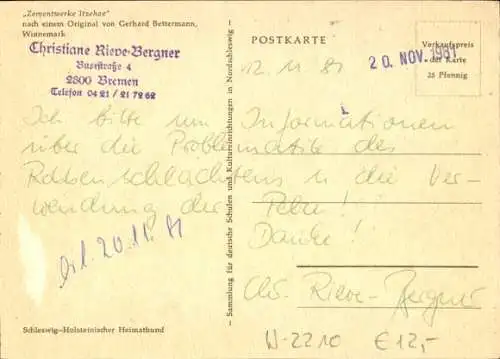 „Zementwerke Itzehoe"
nach einem Original von Gerhard Bettermann,
Winnemark
Christiane Rieve-Bergner
Busestraße 4
2800 Bremen
Telefon 04 21 / 21 72 62
POSTKARTE
Verkaufspreis
der Karte
25 Pfennig
20. NOV. 1981
12. 11. 81
Ich bitte um Informationen
über die Problematik des
Robbenschlachtens u. die Ver-
wendung der Pelze!
Danke!
Chr. Rieve-Bergner
erl. 20.11.81
— Sammlung für deutsche Schulen und Kultureinrichtungen in Nordschleswig —
Schleswig-Holsteinischer Heimatbund
W-2210 €12,-